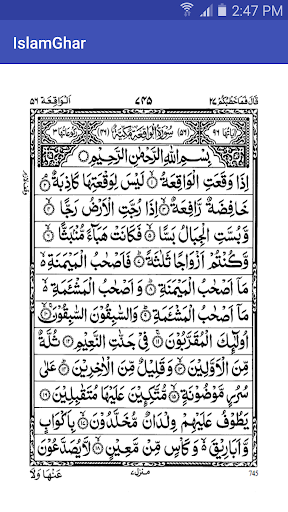 2:47 PM
IslamGhar
قال فما خطبكم ٢٧
٧٤٥
الواقعة ٥٦
اٰیاتها ٩٦
(٥٦) سُوْرَةُ الْوَاقِعَةِ مَكِّيَّةٌ (٤٦)
رکوعاتها ٣
بِسْمِ اللّٰهِ الرَّحْمٰنِ الرَّحِيْمِ
اِذَا وَقَعَتِ الْوَاقِعَةُ ۝١ لَيْسَ لِوَقْعَتِهَا كَاذِبَةٌ ۝٢
خَافِضَةٌ رَّافِعَةٌ ۝٣ اِذَا رُجَّتِ الْاَرْضُ رَجًّا ۝٤
وَّبُسَّتِ الْجِبَالُ بَسًّا ۝٥ فَكَانَتْ هَبَآءً مُّنْۢبَثًّا ۝٦
وَّكُنْتُمْ اَزْوَاجًا ثَلٰثَةً ۝٧ فَاَصْحٰبُ الْمَيْمَنَةِ
مَاۤ اَصْحٰبُ الْمَيْمَنَةِ ۝٨ وَاَصْحٰبُ الْمَشْئَمَةِ
مَاۤ اَصْحٰبُ الْمَشْئَمَةِ ۝٩ وَالسّٰبِقُوْنَ السّٰبِقُوْنَ ۝١٠
اُولٰٓئِكَ الْمُقَرَّبُوْنَ ۝١١ فِيْ جَنّٰتِ النَّعِيْمِ ۝١٢ ثُلَّةٌ
مِّنَ الْاَوَّلِيْنَ ۝١٣ وَقَلِيْلٌ مِّنَ الْاٰخِرِيْنَ ۝١٤ عَلٰى
سُرُرٍ مَّوْضُوْنَةٍ ۝١٥ مُّتَّكِـِٕيْنَ عَلَيْهَا مُتَقٰبِلِيْنَ ۝١٦
يَطُوْفُ عَلَيْهِمْ وِلْدَانٌ مُّخَلَّدُوْنَ ۝١٧ بِاَكْوَابٍ
وَّاَبَارِيْقَ ۙ وَكَاْسٍ مِّنْ مَّعِيْنٍ ۝١٨ لَّا يُصَدَّعُوْنَ
عَنْهَا وَلَا
منزل ٧
745